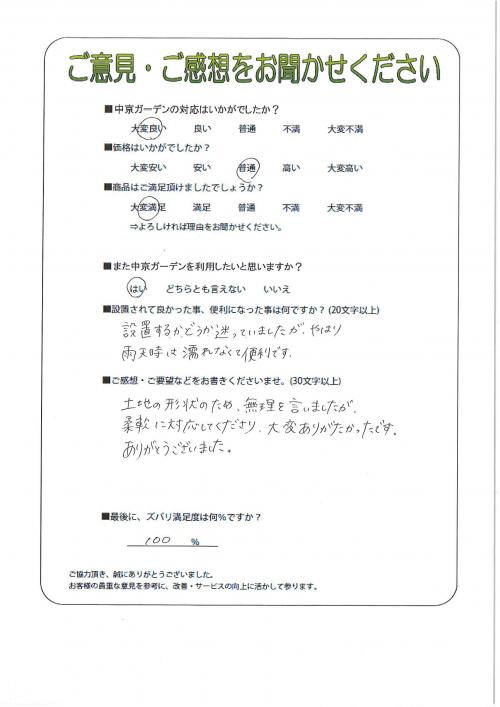 ご意見・ご感想をお聞かせください
■中京ガーデンの対応はいかがでしたか？
大変良い 良い 普通 不満 大変不満
■価格はいかがでしたか？
大変安い 安い 普通 高い 大変高い
■商品はご満足頂けましたでしょうか？
大変満足 満足 普通 不満 大変不満
⇒よろしければ理由をお聞かせください。
■また中京ガーデンを利用したいと思いますか？
はい どちらとも言えない いいえ
■設置されて良かった事、便利になった事は何ですか？(20文字以上)
設置するかどうか迷っていましたが、やはり
雨天時は濡れなくて便利です。
■ご感想・ご要望などをお書きくださいませ。(30文字以上)
土地の形状のため、無理を言いましたが、
柔軟に対応してくださり、大変ありがたかったです。
ありがとうございました。
■最後に、ズバリ満足度は何％ですか？
100 %
ご協力頂き、誠にありがとうございました。
お客様の貴重な意見を参考に、改善・サービスの向上に活かして参ります。